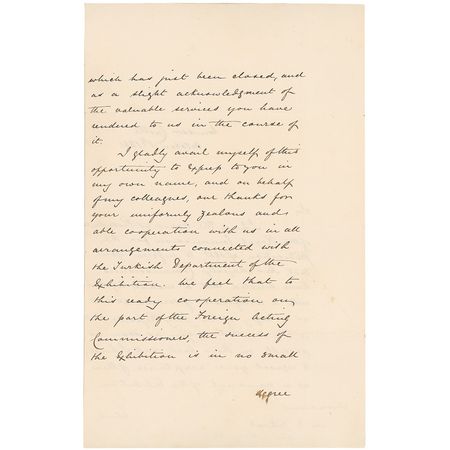 which has just been closed, and
as a slight acknowledgment of
the valuable services you have
rendered to us in the course of
it.
I gladly avail myself of this
opportunity to express to you in
my own name, and on behalf
of my colleagues, our thanks for
your uniformly zealous and
able cooperation with us in all
arrangements connected with
the Turkish Department of the
Exhibition. We feel that to
this ready co-operation on
the part of the Foreign Acting
Commissioners, the success of
the Exhibition is in no small
degree